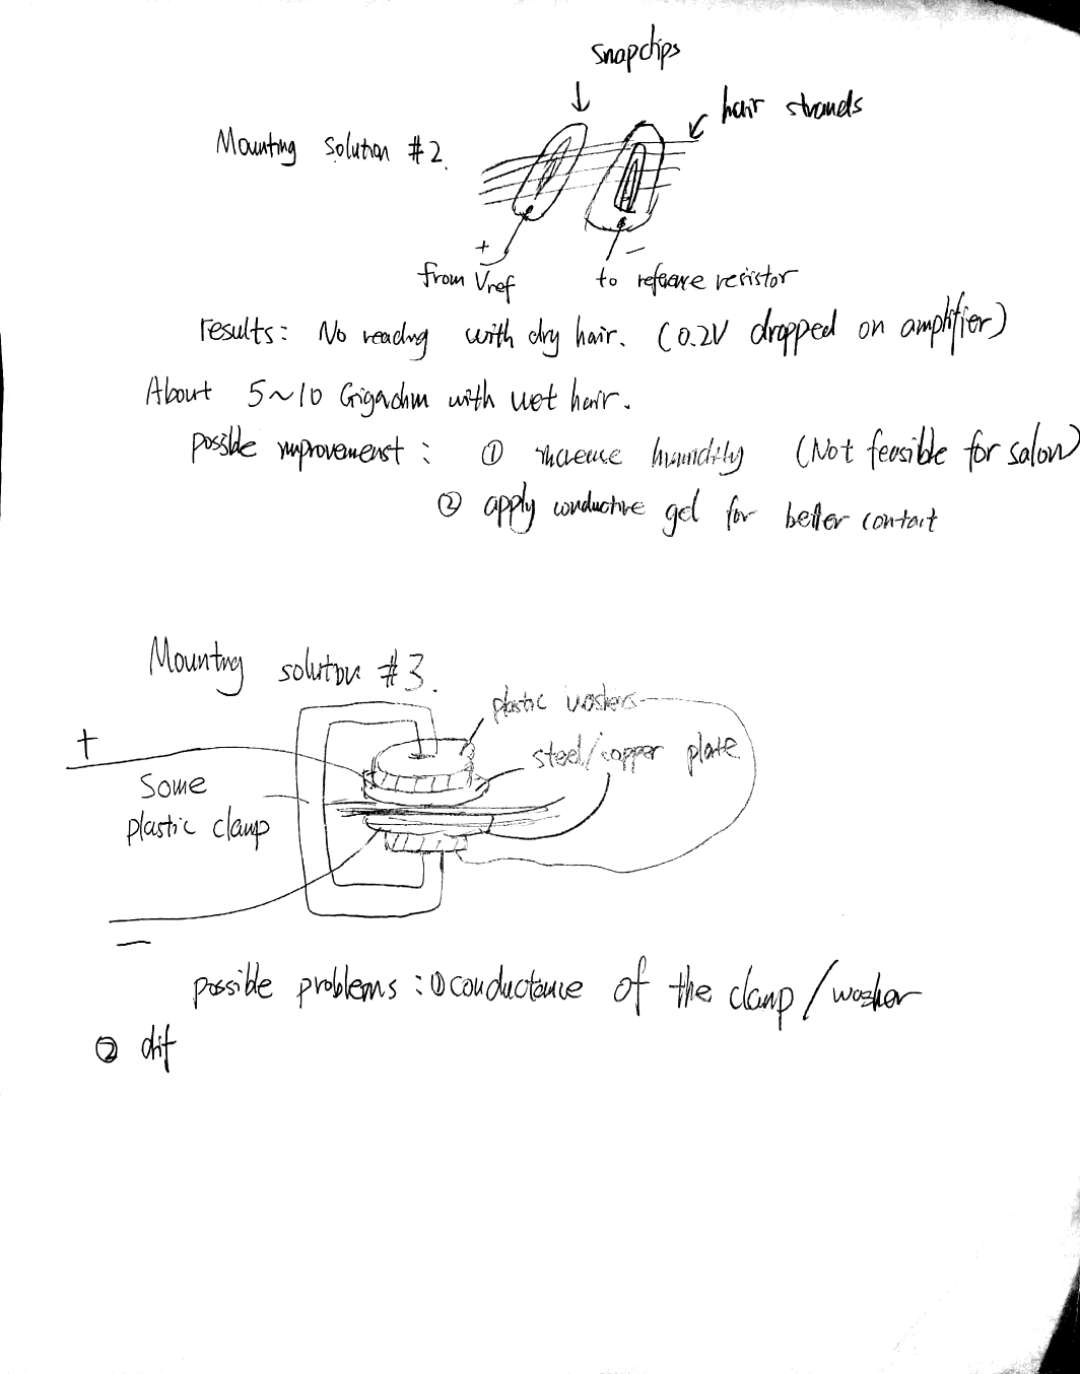 snapclips
hair strands
Mounting solution #2.
+
-
from Vref
to refeare resistor
results: No reading with dry hair. (0.2V dropped on amplifier)
About 5~10 Gigaohm with wet hair.
possible improvement: ① increase humidity (Not feasible for salon)
② apply conductive gel for better contact
Mounting solution #3.
plastic washers
+
steel/copper plate
Some
plastic clamp
-
possible problems: ① conductance of the clamp/washer
② dif